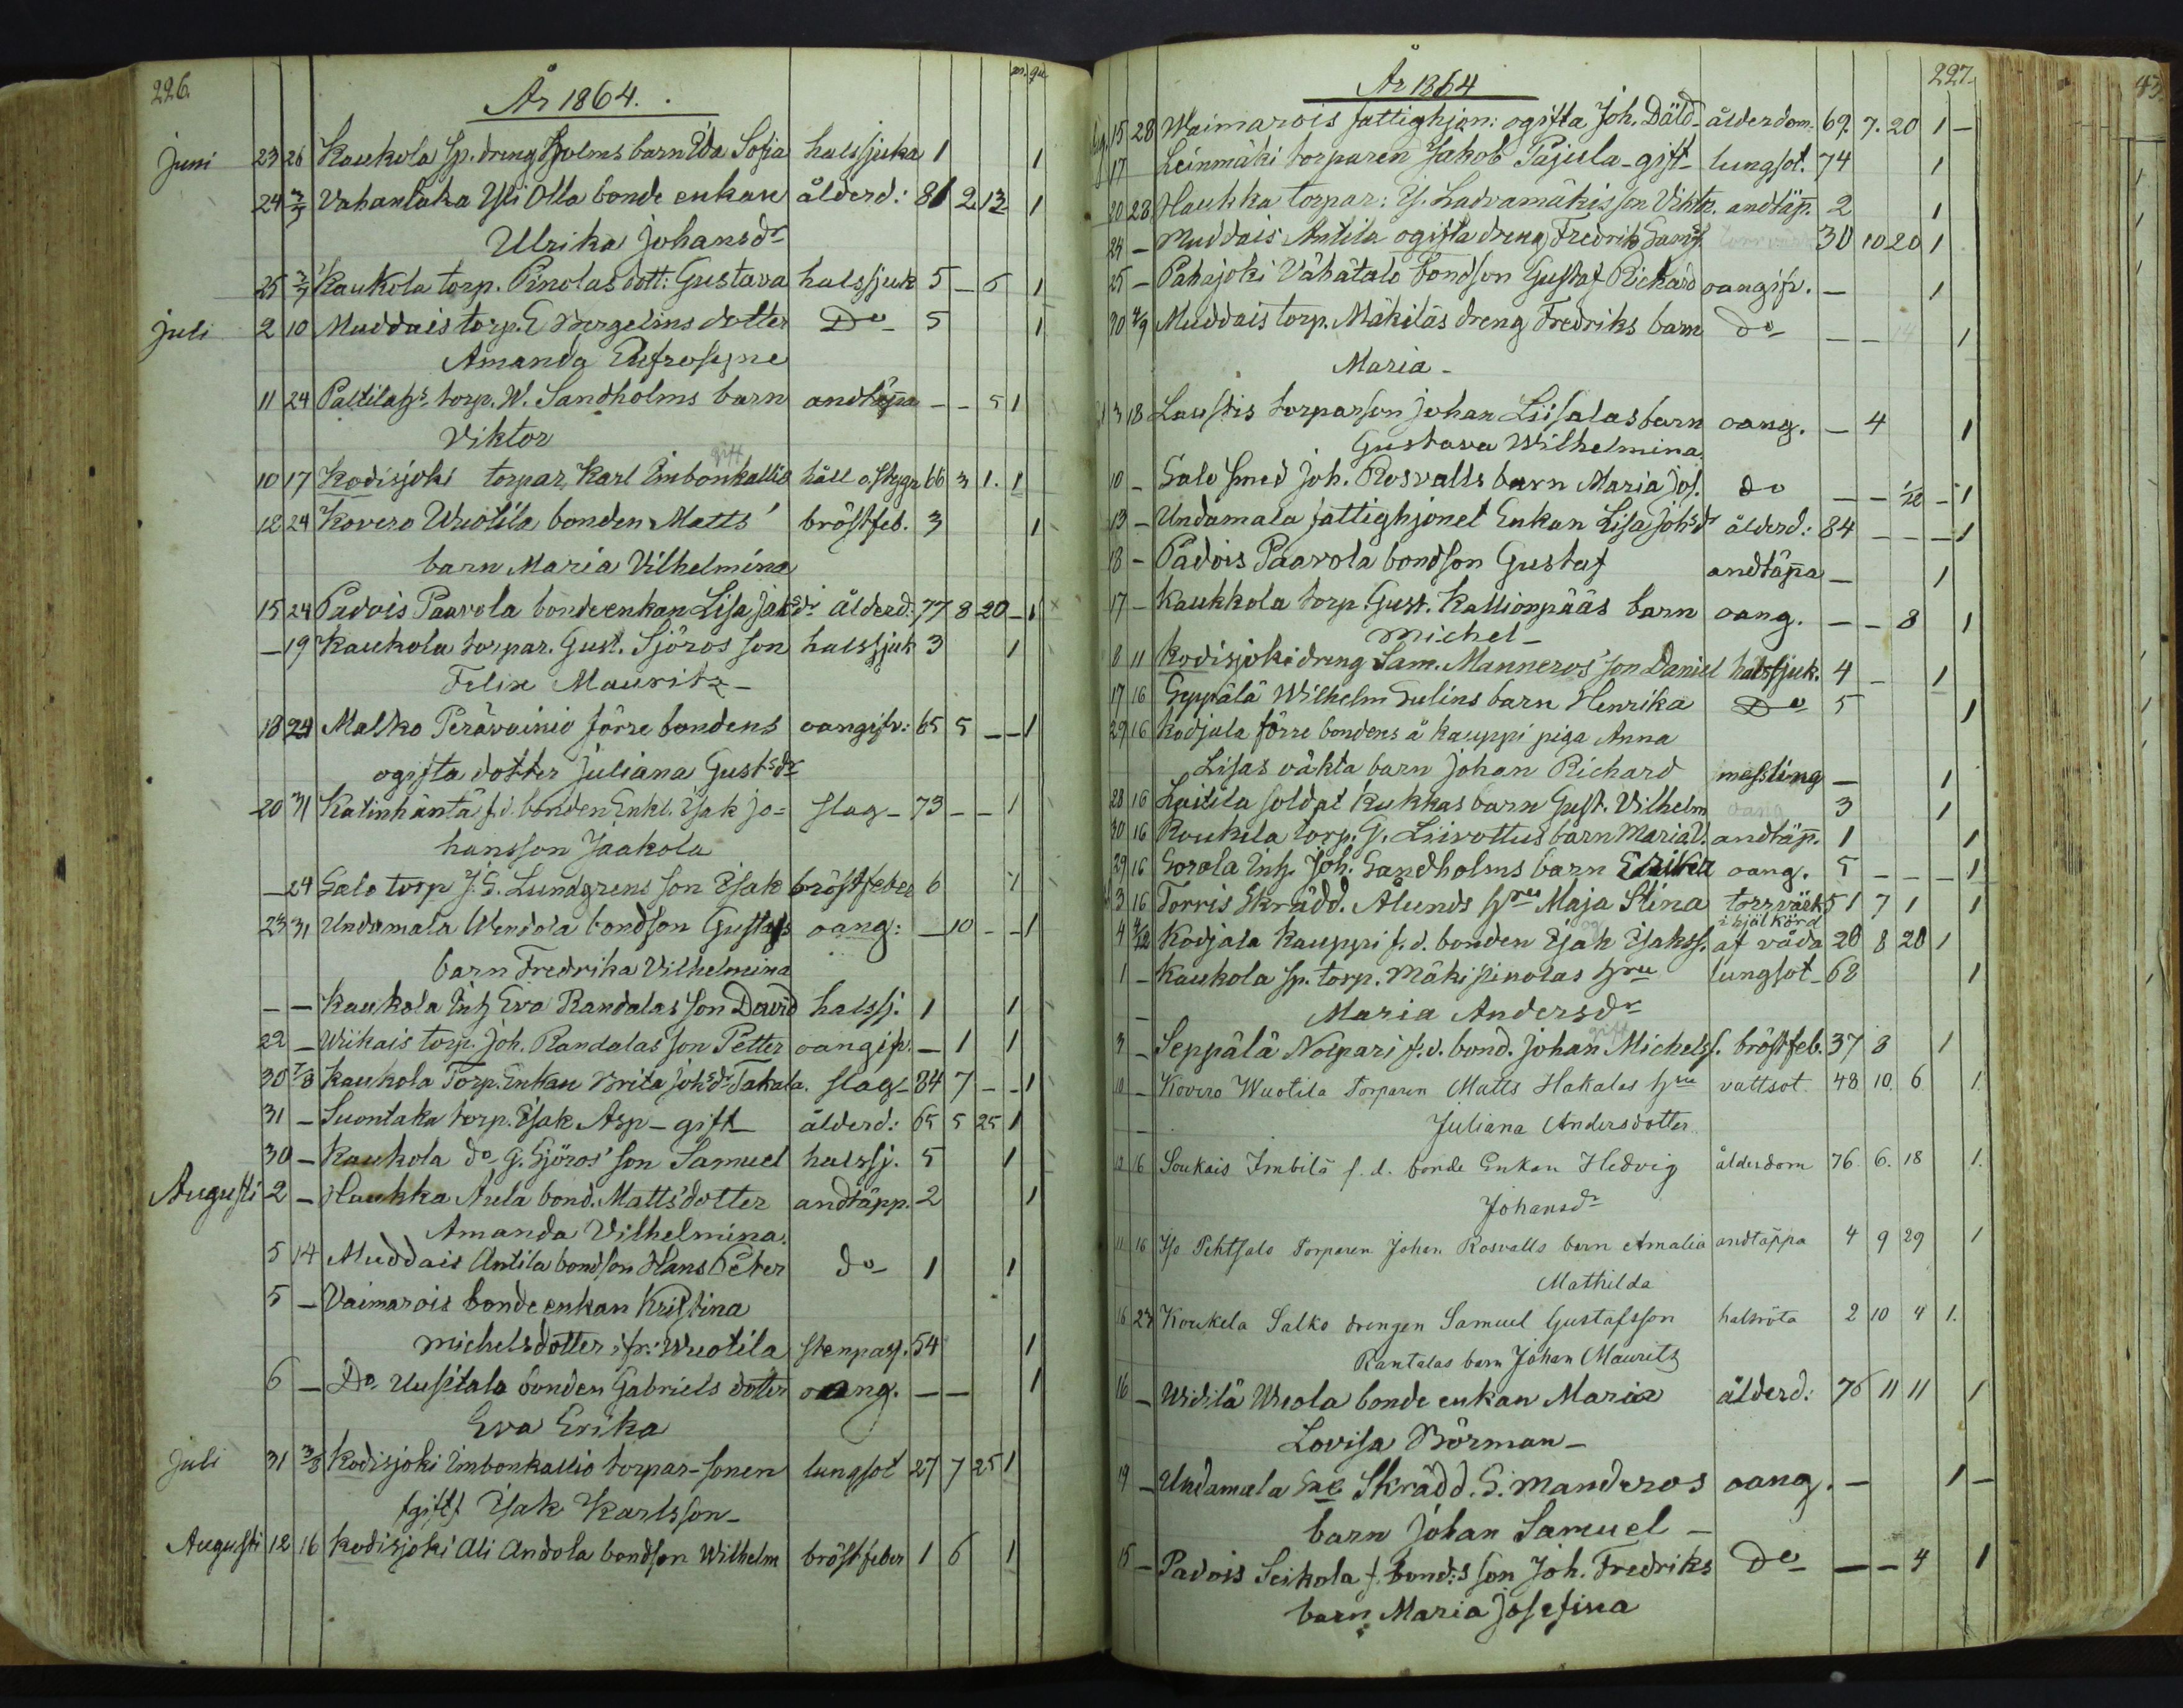 226.
År 1864.
m. qu
Juni 23 26 Kaukola sp. dreng Hjolms barn Ida Sofia halssjuka 1 1
24 3/7 Vahantaka Yli Olla bonde enkan ålderd: 81 2 12 1
Ulrika Johansdr
25 3/7 Kaukola torp. Pinolas dott: Gustava halssjuk 5 – 6 1
Juli 2 10 Muddais torp. E Bergelins dotter Do 5 1
Amanda Eufrosyne
11 24 Paltila torp. W. Sandholms barn andtäppa – – 5 1
Viktor
gift
10 17 Kodisjoki torpar Karl Imbonkallio håll o. stygn 66 3 1. 1
12 24 Kovero Wuotila bonden Matts' bröstfeb. 3 1
barn Maria Vilhelmina
15 24 Padois Paavola bondeenkan Lisa Jaksdr ålderd: 77 8 20 – 1
– 19 Kaukola torpar. Gust. Sjöros son halssjuk 3 1
Felix Mauritz –
18 24 Malko Perävainio förre bondens oangifv: 65 5 – – 1
ogifta dotter Juliana Gustsdr
20 31 Katinhäntä f.d. bonden Enkl. Isak Jo= slag – 73 – – 1
hansson Jaakola
– 24 Salo torp J. G. Lundgrens son Isak bröstfeber 6 1
23 31 Undamala Uendola bondson Gustafs oang: – 10 – – 1
barn Fredrika Vilhelmina
– – Kaukola Inh Eva Randalas son David halssj. 1 1
22 – Wiikais torp. Joh. Randalas son Petter oangifv. – 1 1
30 7/8 Kaukola Torp. Enkan Brita Johsdr Takala. slag – 84 7 – – 1
31 – Suontaka torp. Isak Asp – gift – ålderd: 65 5 25 1
30 – Kaukola do G. Sjöros' son Samuel halssj. 5 1
Augusti 2 – Haukka Aula bond. Matts' dotter andtäpp. 2 1
Amanda Vilhelmina.
5 14 Muddais Antila bondson Hans Peter do 1 1
5 – Vaimarois bonde enkan Kristina
Michelsdotter ifr: Wuotila stenpass. 54 1
6 – Do Uusitalo bonden Gabriels dotter oang. – – 1
Eva Erika
Juli 31 3/8 Kodisjoki Imbonkallio torpar-sonen lungsot 27 7 25 1
(gift) Isak Karlsson –
Augusti 12 16 Kodisjoki Ali Andola bondson Wilhelm bröstfeber 1 6 1
År 1864
227.
Aug. 15 28 Waimarois fattighjon: ogifta Joh. Däld – ålderdom. 69. 7. 20 1 –
17 Leinmäki torparen Jakob Pajula – gift – lungsot. 74 1
20 28 Haukka torpar: Is. Ladvamäkis son Viktr. andtäp. 2 1
24 – Muddais Antila ogifta dreng Fredrik Sam 30 10 20 1
25 – Pahajoki Vähätalo bondson Gustaf Richard oangifv. – 1
30 4/9 Muddais torp. Mäkiläs dreng Fredriks barn do – – 14 1
Maria –
3 18 Laustis torparson Johan Liisalas barn oang. – 4 1
Gustava Wilhelmina
10 – Salo smed Joh. Rosvalls barn Maria Jos. do – – 1/12 – 1
13 – Undamala fattighjonet Enkan Lisa Johsdr ålderd: 84 – – – 1
18 – Padois Paavola bondson Gustaf andtäpa – 1
17 – Kaukkola torp. Gust. Kallionpääs barn oang. – – 8 1
Michel –
8 11 Kodisjoki dreng Sam. Manneros' son Daniel halssjuk. 4 – 1
17 16 Seppälä Wilhelm Sulins barn Henrika Do 5 1
29 16 Kodjala förre bondens å Kauppi piga Anna
Lisas oäkta barn Johan Richard messling – 1
28 16 Laitila soldat Kukkas barn Gust. Vilhelm oang 3 1
30 16 Koukela torp. G. Liivottus barn Maria V. andtäpp. 1 1
29 16 Sorola Inh. Joh. Sandholms barn Erika oang. 5 – – – 1
3 16 Torris Skrädd. Ålunds hru Maja Stina torrvärk 51 7 1 1
i hjäl körd
4 4/12 Kodjala Kauppi f. d. bonden Isak Isakss. af våda 20 8 28 1
1 – Kaukola sp. torp. Mäki Pinolas hru lungsot – 68 1
– Maria Andersdr
gift
3 – Seppälä Nolpari f. d. bond. Johan Michelss. bröstfeb. 37 8 1
10 – Kovero Wuotila Torparen Matts Hakalas hru vattsot 48 10. 6 1.
Juliana Andersdotter
12 16 Soukais Imbilä f. d. bonde Enkan Hedvig ålderdom 76 6. 18 1.
Johansdr
11 16 Iso Pehtsalo Torparen Johan Rosvalls barn Amalia andtäppa 4 9 29 1
Mathilda
16 23 Koukela Salko drengen Samuel Gustafsson halsröta 2 10 4 1.
Rantalas barn Johan Maurits
16 – Widilä Uuola bonde enkan Maria ålderd: 76 11 11 1
Lovisa Börman –
19 – Undamala Skrädd. G. Manderos oang. – 1 –
barn Johan Samuel –
15 – Padois Seikola f. bond:s son Joh. Fredriks Do – – 4 1
barn Maria Josefina
43.